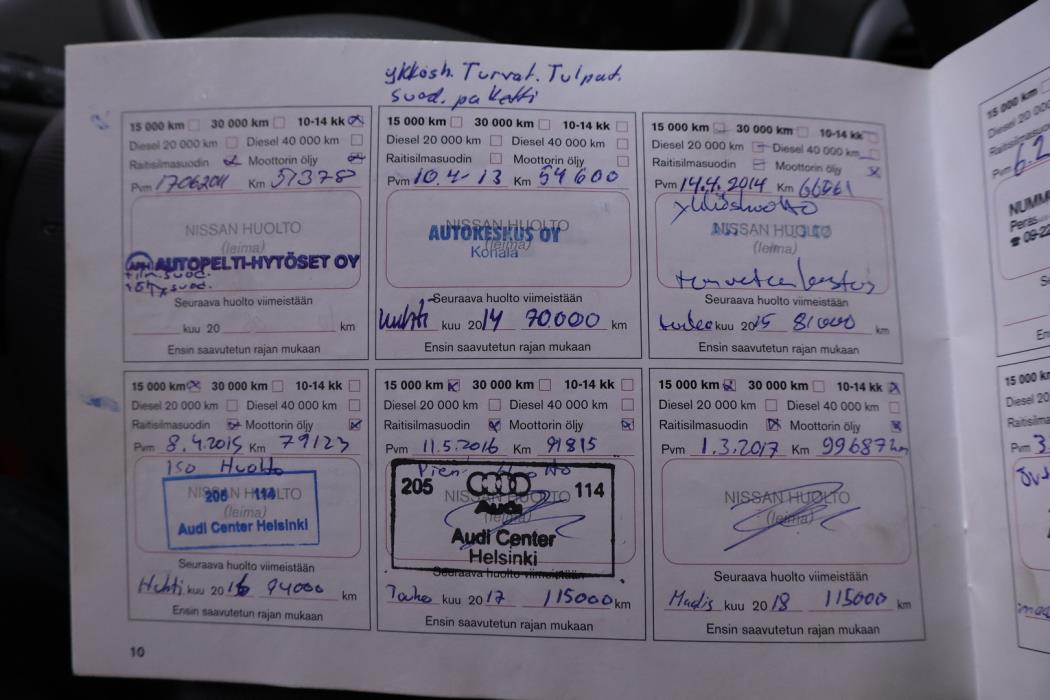 ykkösh. Turvat. Tulpat.
suod. paketti
15 000 km 30 000 km 10-14 kk
Diesel 20 000 km Diesel 40 000 km
Raitisilmasuodin Moottorin öljy
Pvm 17062011 Km 51378
NISSAN HUOLTO
(leima)
AUTOPELTI-HYTÖSET OY
suod.
suod.
Seuraava huolto viimeistään
kuu 20 km
Ensin saavutetun rajan mukaan
15 000 km 30 000 km 10-14 kk
Diesel 20 000 km Diesel 40 000 km
Raitisilmasuodin Moottorin öljy
Pvm 10.4-13 Km 54600
NISSAN HUOLTO
AUTOKESKUS OY
(leima)
Konala
Seuraava huolto viimeistään
Huhti kuu 2014 70000 km
Ensin saavutetun rajan mukaan
15 000 km 30 000 km 10-14 kk
Diesel 20 000 km Diesel 40 000 km
Raitisilmasuodin Moottorin öljy
Pvm 14.4.2014 Km 66061
ykköshuolto
NISSAN HUOLTO
(leima)
Seuraava huolto viimeistään
kuu 2015 81000 km
Ensin saavutetun rajan mukaan
15 000 km 30 000 km 10-14 kk
Diesel 20 000 km Diesel 40 000 km
Raitisilmasuodin Moottorin öljy
Pvm 8.4.2015 Km 79123
Iso Huolto
NISSAN HUOLTO
205 114
(leima)
Audi Center Helsinki
Seuraava huolto viimeistään
Huhti kuu 2016 94000 km
Ensin saavutetun rajan mukaan
15 000 km 30 000 km 10-14 kk
Diesel 20 000 km Diesel 40 000 km
Raitisilmasuodin Moottorin öljy
Pvm 11.5.2016 Km 91815
Pieni Huolto
205 114
NISSAN HUOLTO
Audi
(leima)
Audi Center
Helsinki
Seuraava huolto viimeistään
Touko kuu 2017 115000 km
Ensin saavutetun rajan mukaan
15 000 km 30 000 km 10-14 kk
Diesel 20 000 km Diesel 40 000 km
Raitisilmasuodin Moottorin öljy
Pvm 1.3.2017 Km 99687 km
NISSAN HUOLTO
(leima)
Seuraava huolto viimeistään
Maalis kuu 2018 115000 km
Ensin saavutetun rajan mukaan
10
15 000 km
Diesel 20 000
Raitisilmasuodin
Pvm 6.2
NUMM
Peras
09-22
Ensin
15 000 k
Diesel 20
Raitisilm
Pvm 3